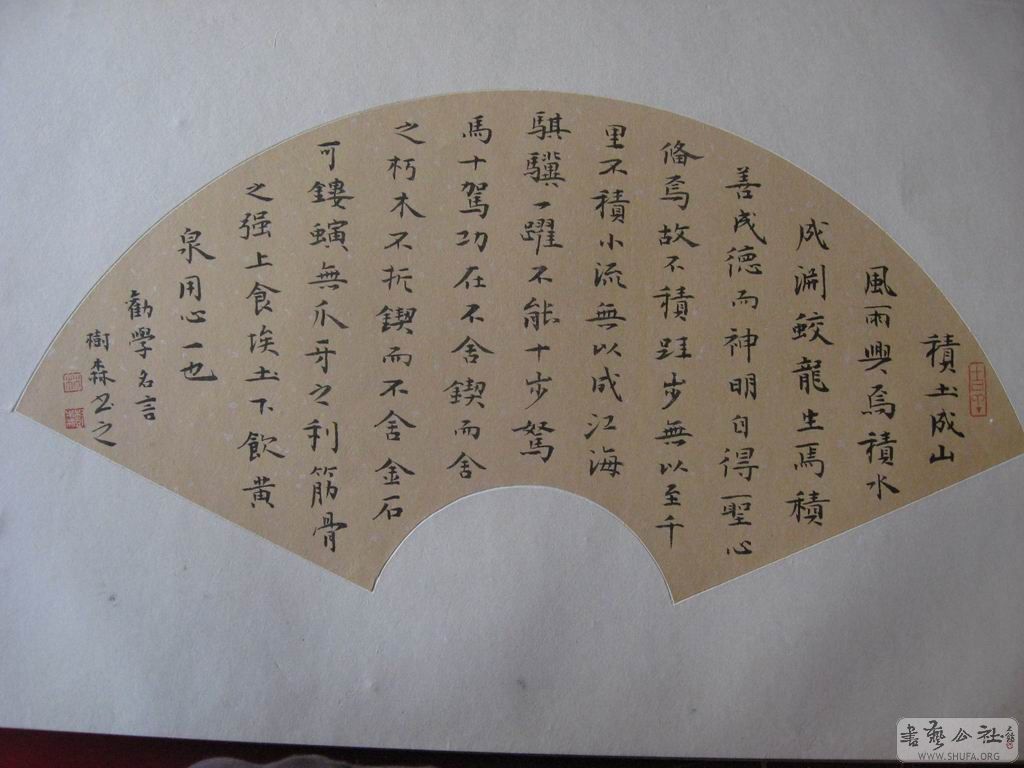 積土成山
風雨興焉積水
成渊鲛龍生焉積
善成德而神明自得聖心
俻焉故不積跬步無以至千
里不積小流無以成江海
騏驥一躍不能十步駑
馬十駕功在不舍鍥而舍
之朽木不折鍥而不舍金石
可鏤螾無爪牙之利筋骨
之强上食埃土下飲黄
泉用心一也
勸學名言
樹森书之
書藝公社
WWW.SHUFA.ORG